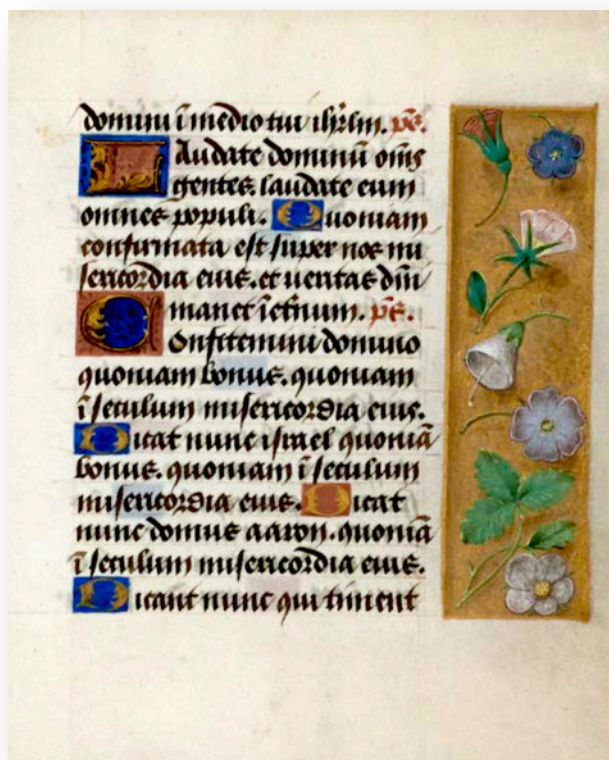 domini ī medio tui ihrlm. ps̄.
Laudate dominū om̄s
gentes laudate eum
omnes populi. Quoniam
confirmata est super nos mi
sericordia eius. et ueritas dn̄i
manet ī etnum. ps̄.
Confitemini domino
quoniam bonus. quoniam
ī seculum misericordia eius.
Dicat nunc israel quoniā
bonus. quoniam ī seculum
misericordia eius. Dicat
nunc domus aaron. quoniā
ī seculum misericordia eius.
Dicant nunc qui timent